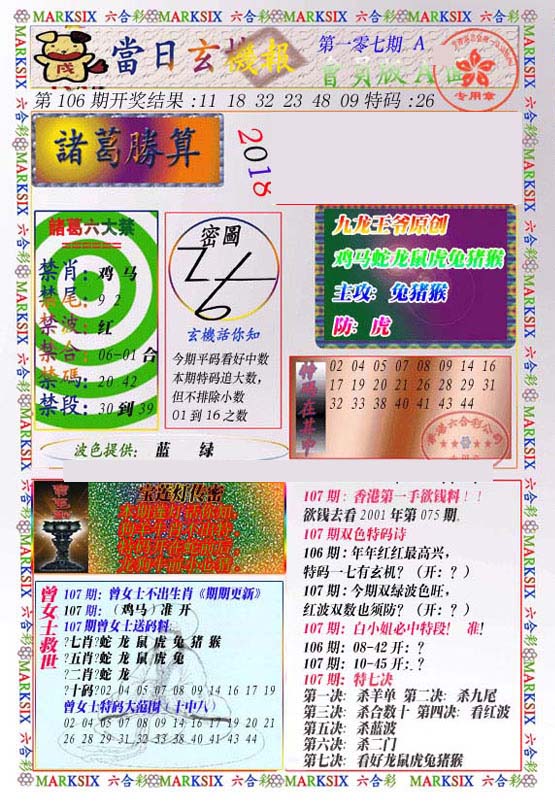 MARKSIX 六合彩 MARKSIX 六合彩 MARKSIX 六合彩 MARKSIX 六合彩 MARKSIX 六合彩
當日玄機報
第一零七期 A
會員版A面
专用章
第106期开奖结果:11 18 32 23 48 09特码:26
諸葛勝算
2018
諸葛六大禁
禁肖:鸡 马
禁尾:9 2
禁波:红
禁合:06-01合
禁碼:20 42
禁段:30到39
密圖
玄機話你知
今期平码看好中数
本期特码追大数,
但不排除小数
01到16之数
九龙王爷原创
鸡马蛇龙鼠虎兔猪猴
主攻:兔猪猴
防:虎
特码在其中
02 04 05 07 08 09 14 16
17 19 20 21 26 28 29 31
32 33 38 40 41 43 44
波色提供: 蓝 绿
宝莲灯传密
107期:曾女士不出生肖《期期更新》
107期:(鸡马)准 开
107期曾女士送码料:
?七肖?蛇 龙 鼠 虎 兔 猪 猴
?五肖?蛇 龙 鼠 虎 兔
?二肖?蛇 龙
?十码?02 04 05 07 08 09 14 16 17 19
曾女士特码大范围(十中八)
02 04 05 07 08 09 14 16 17 19 20 21
26 28 29 31 32 33 38 40 41 43 44
曾女士救世
107期:香港第一手欲钱料!!
欲钱去看2001年第075期.
107期双色特码诗
106期:年年红红最高兴,
特码一七有玄机?(开:?)
107期:今期双绿波色旺,
红波双数也须防?(开:?)
107期:白小姐必中特段! 准!
106期:08-42开:?
107期:10-45开:?
107期:特七决
第一决:杀羊单 第二决:杀九尾
第三决:杀合数十 第四决:看红波
第五决:杀蓝波
第六决:杀二门
第七决:看好龙鼠虎兔猪猴
MARKSIX 六合彩 MARKSIX 六合彩 MARKSIX 六合彩 MARKSIX 六合彩 MARKSIX 六合彩